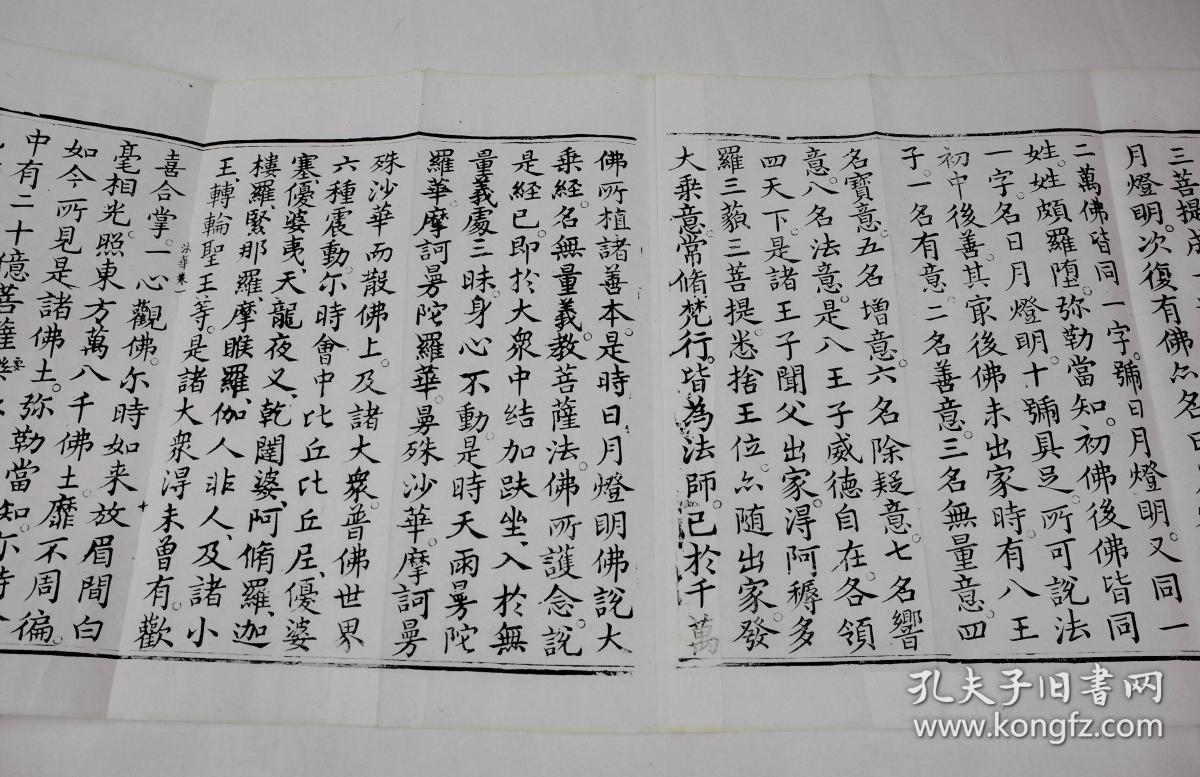 三菩提成一
月燈明。次復有佛。亦名日
二萬佛。皆同一字。號日月燈明。又同一
姓。姓頗羅堕。弥勒當知。初佛後佛。皆同
一字。名日月燈明。十號具足。所可說法
初中後善。其㝡後佛。未出家時。有八王
子。一名有意。二名善意。三名無量意。四
名寶意。五名增意。六名除疑意。七名響
意。八名法意。是八王子威德自在。各領
四天下。是諸王子聞父出家。淂阿耨多
羅三藐三菩提。悉捨王位。亦随出家。發
大乗意。常脩梵行。皆為法師。已於千萬
佛所植諸善本。是時日月燈明佛說大
乗經。名無量義。教菩薩法。佛所護念。說
是經已。即於大衆中結加趺坐。入於無
量義處三昧。身心不動。是時天雨曼陀
羅華。摩訶曼陀羅華。曼殊沙華。摩訶曼
殊沙華。而散佛上。及諸大衆。普佛世界
六種震動。尓時會中比丘比丘尼、優婆
塞優婆夷、天龍夜叉、乾闥婆、阿脩羅、迦
樓羅、緊那羅、摩睺羅伽、人非人、及諸小
王、轉輪聖王等。是諸大衆淂未曾有。歡
喜合掌。一心觀佛。尓時如来放眉間白
毫相光。照東方萬八千佛土。靡不周徧。
如今所見是諸佛土。弥勒當知。尓時
中有二十億菩薩
孔夫子旧书网
www.kongfz.com